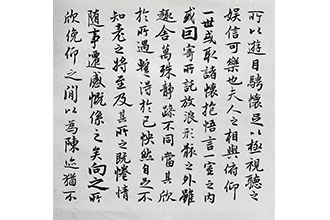 所以遊目騁懷足以極視聽之
娛信可樂也夫人之相與俯仰
一世或取諸懷抱悟言一室之內
或因寄所託放浪形骸之外雖
趣舍萬殊靜躁不同當其欣
於所遇暫得於己快然自足不
知老之將至及其所之既惓情
隨事遷感慨係之矣向之所
欣俛仰之間以為陳迹猶不